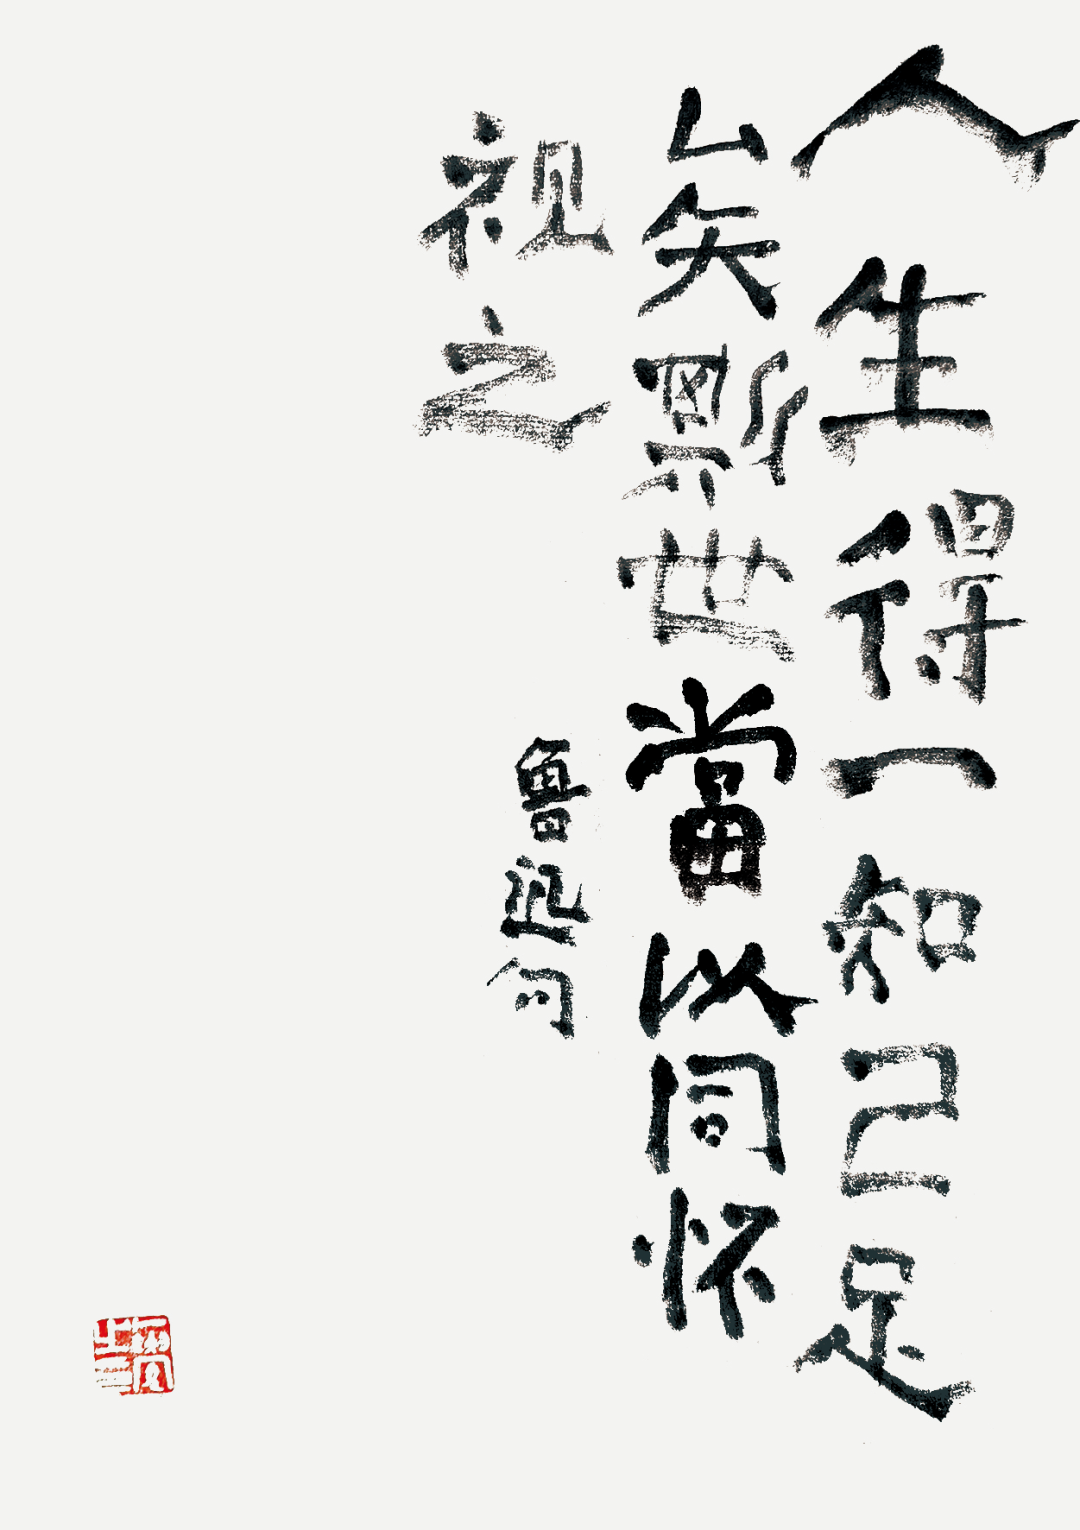 人生得一知己足
矣斯世當以同怀
视之
鲁迅句